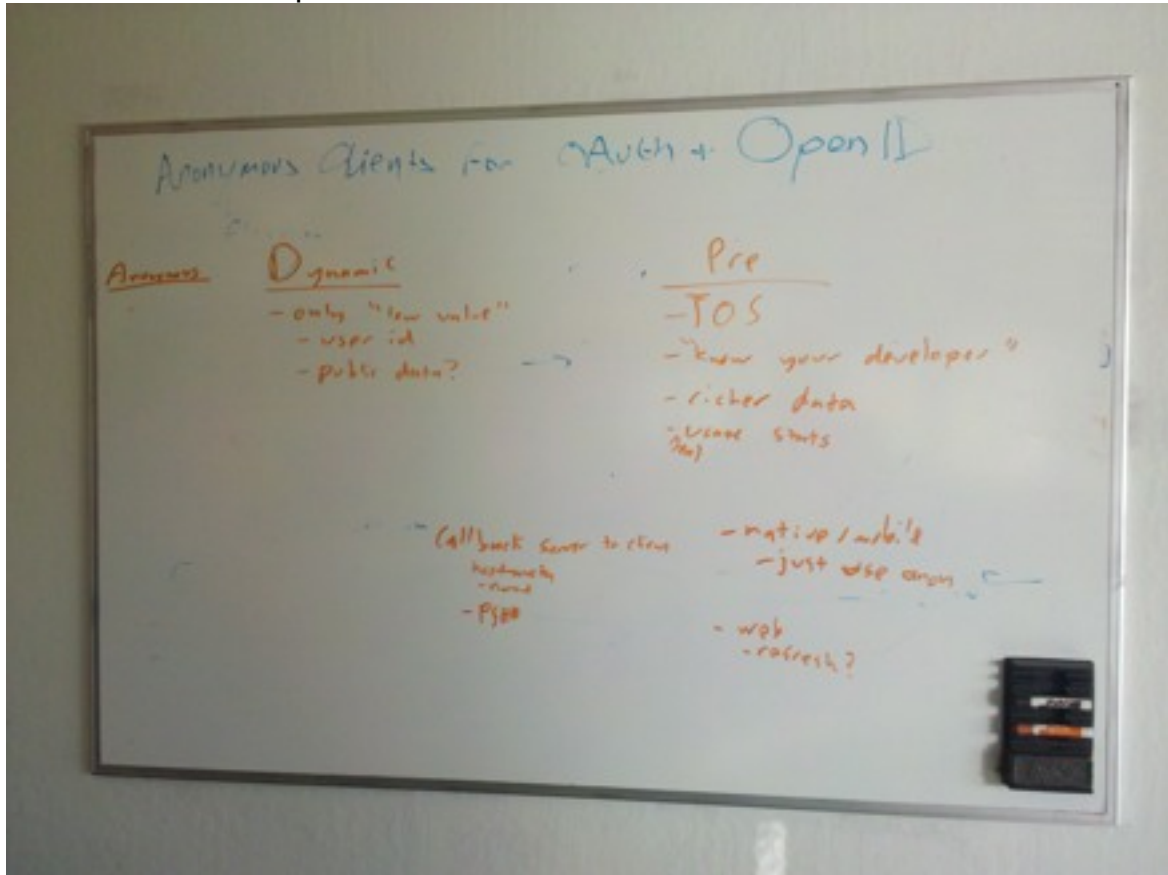 Anonymous Clients For OAuth + OpenID
Anonymous
Dynamic
- only "low value"
- user id
- public data?
Pre
- TOS
- "know your developer"
- richer data
- usage stats
Callback Server to client
- native/mobile
- just use anon
- web
- refresh?